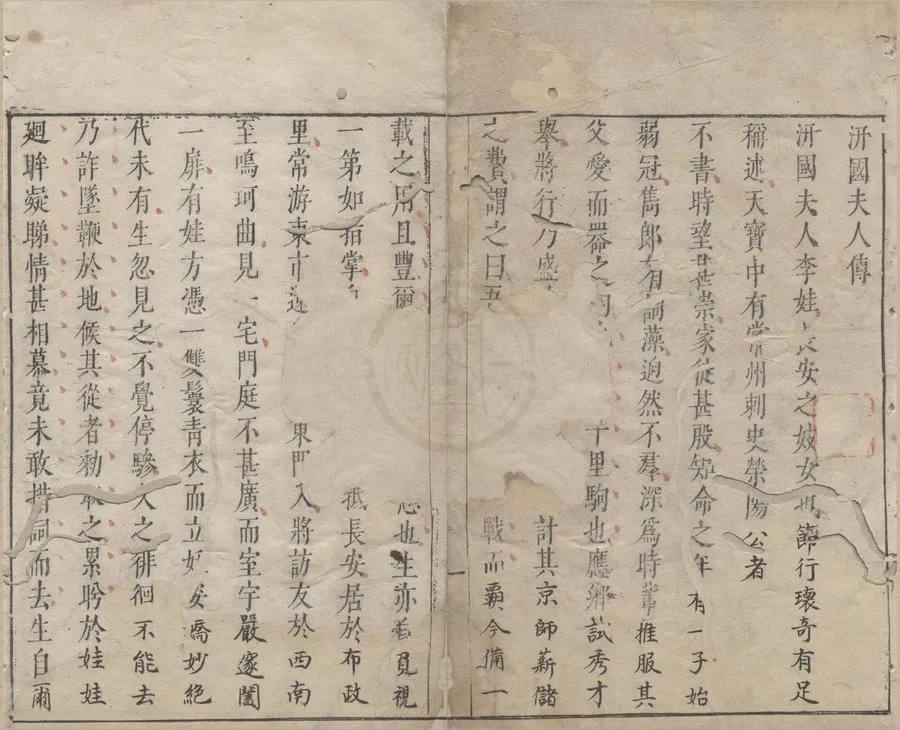 汧國夫人傳
汧國夫人李娃長安之妓女也節行瓌奇有足
稱述天寶中有常州刺史滎陽公者
不書時望甚崇家從甚殷知命之年有一子始
弱冠雋郎有詞藻逈然不羣深為時輩推服其
父愛而器之曰 千里駒也應鄉試秀才
舉將行乃盛 計其京師薪儲
之費謂之曰五 戰而霸今備一
載之用且豐爾 心也生亦 視
一第如指掌自 抵長安居於布政
里常游東市還 東門入將訪友於西南
至鳴珂曲見一宅門庭不甚廣而室宇嚴邃闔
一扉有娃方憑一雙鬟青衣而立妖姿嬌妙絕
代未有生忽見之不覺停驂久之徘徊不能去
乃詐墜鞭於地候其從者勑取之累眄於娃娃
廻眸凝睇情甚相慕竟未敢措詞而去生自爾